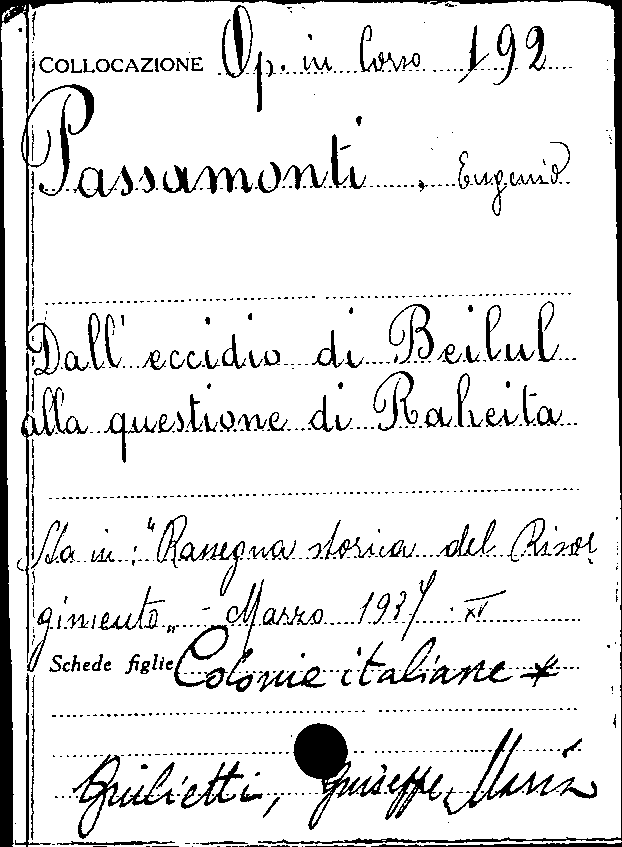 COLLOCAZIONE Op. in Corso 192
Passamonti, Eugenio
Dall' eccidio di Beilul
alla questione di Raheita
Sta in: "Rassegna storica del Risor-
gimento„ - Marzo 1937. XV
Schede figlie Colonie italiane *
Giulietti, Giuseppe Maria